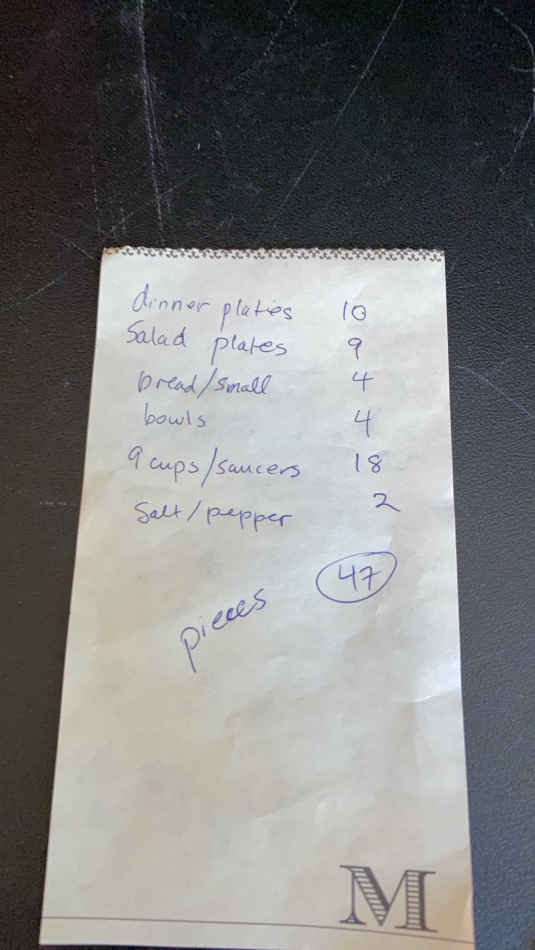 dinner plates 10
Salad plates 9
bread/small 4
bowls 4
9 cups/saucers 18
Salt/pepper 2
pieces 47
M